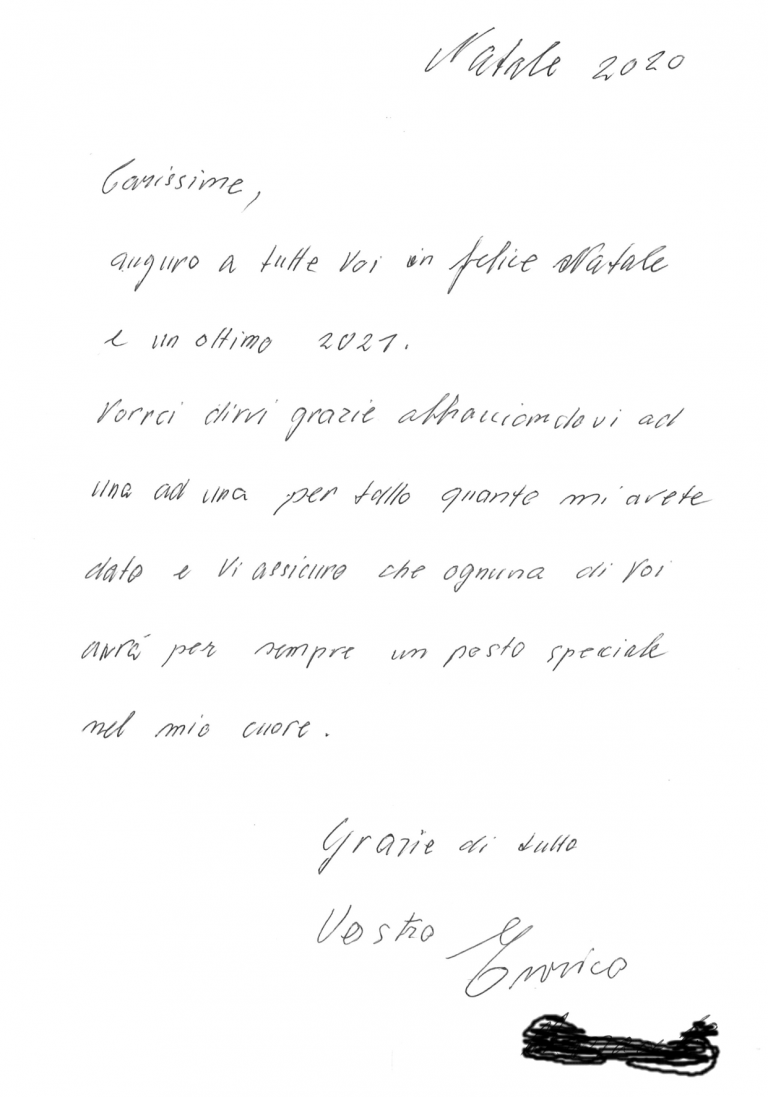 Natale 2020
Carissime,
auguro a tutte Voi un felice Natale
e un ottimo 2021.
Vorrei dirvi grazie abbracciandovi ad
una ad una per tutto quanto mi avete
dato e Vi assicuro che ognuna di Voi
avrà per sempre un posto speciale
nel mio cuore.
Grazie di tutto
Vostro Enrico